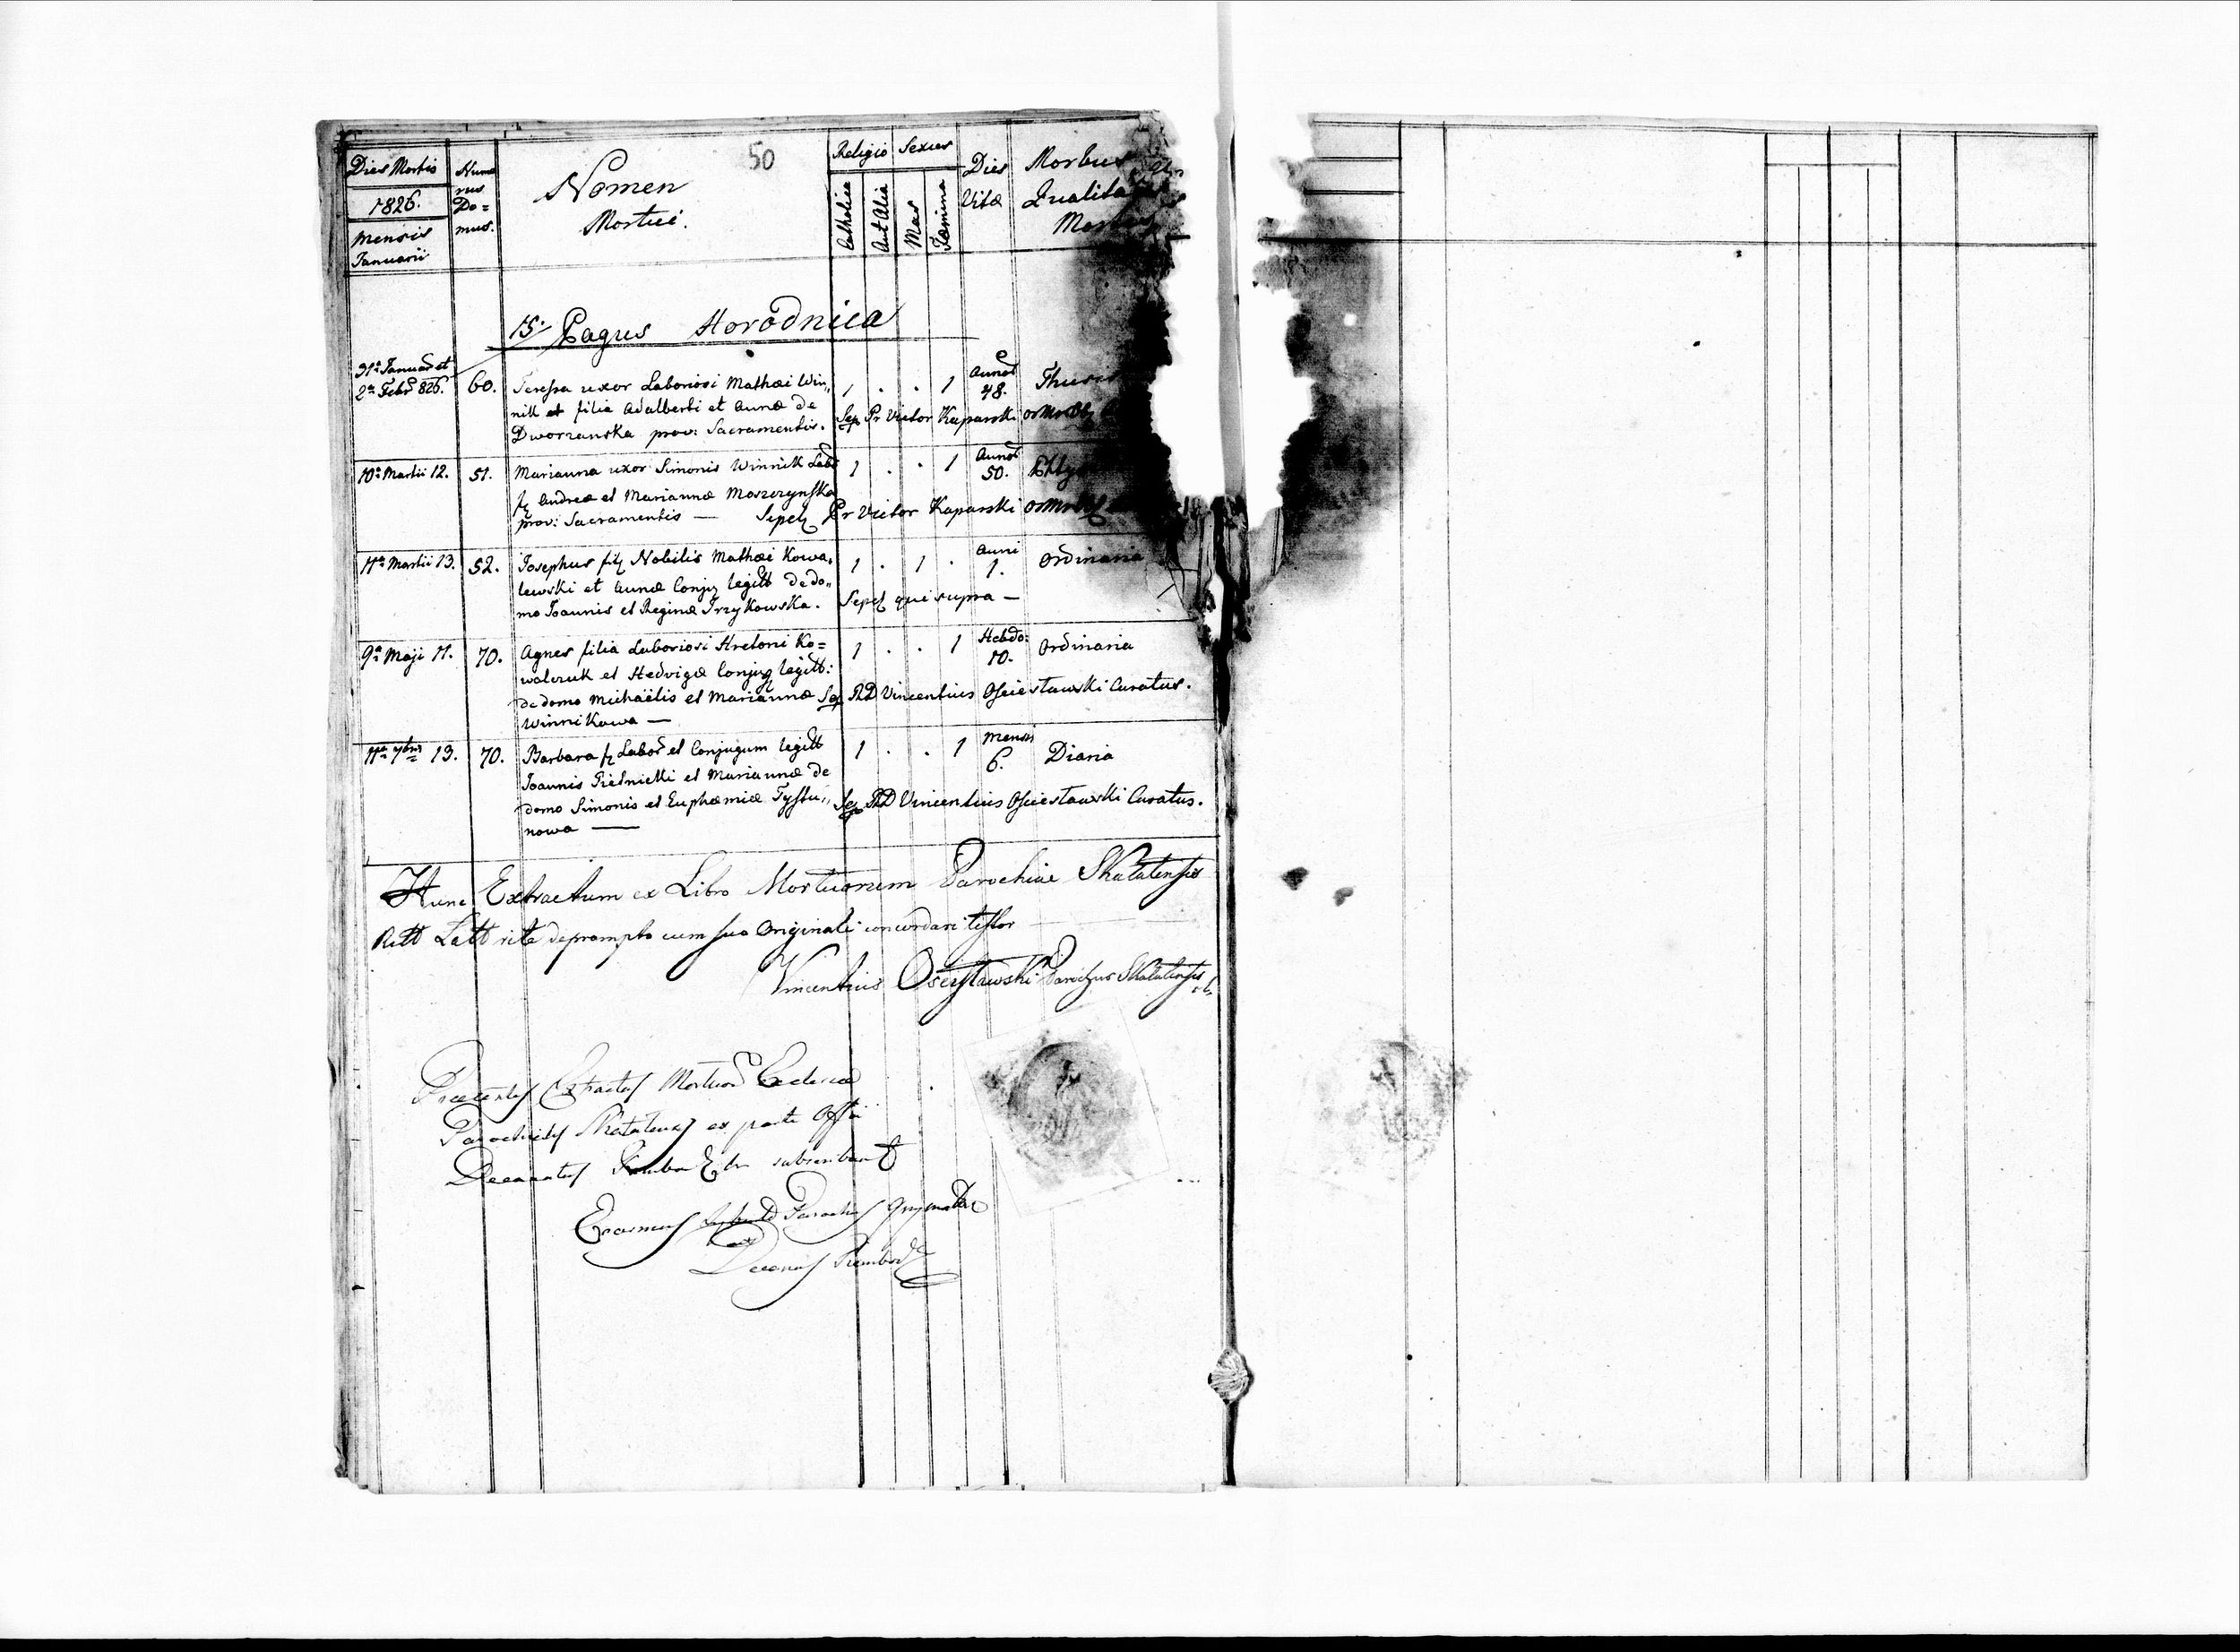 50
Dies Mortis
1826.
Mensis
Januarii
Nume
rus
Do=
mus.
Nomen
Mortui.
Religio
Catholica
Aut Alia
Sexus
Mas
Fæmina
Dies
Vitæ
Morbus
Qualitas
15. Pagus Horodnica
31a Januar et
2a Febr 826.
60.
Teressa uxor Laboriosi Mathæi Win,,
nik et filia Adalberti et Annæ de
Dworzanska prov: Sacramentis.
1 . . 1
Annor
48.
Sep Pr Victor Kaparski
10a Martii 12.
51.
Marianna uxor Simonis Winnik Labo
f Andreæ et Mariannæ Moszczynska
prov: Sacramentis — Sepel Pr Victor Kaparski
1 . . 1
Annor
50.
11a Martii 13.
52.
Josephus fil Nobilis Mathæi Kowa,,
lewski et Annæ Conju legitt de do,,
mo Joannis et Reginæ Trzykowska.
1 . 1 .
Anni
1.
Ordinaria
Sepel qui supra —
9a Maji 11.
70.
Agnes filia Laboriosi Hretorii Ko=
walczuk et Hedvigæ Conjug legitt:
de domo Michaëlis et Mariannæ
Winnikowa —
1 . . 1
Hebdo:
10.
Ordinaria
Sep RD Vincentius Osciestawski Curatus.
11a 7bris 13.
70.
Barbara f Labor et Conjugum legitt
Joannis Pielnicki et Mariannæ de
domo Simonis et Euphæmiæ Tyssu,,
nowa —
1 . . 1
Mensis
6.
Diaria
Sep RD Vincentius Osciestawski Curatus.
Hunc Extractum ex Libro Mortuorum Parochiæ Skalatensis
Ritt Latt rite deprompto cum suo Originali concordari testor
Vincentius Oscystawski Parochus Skalatensis
Præsentes Extractus Mortuor Ecclesiæ
Parochialis Skalatens ex parte Offii
Decanatus subscribunt
Erasmus Parochus
Decanus